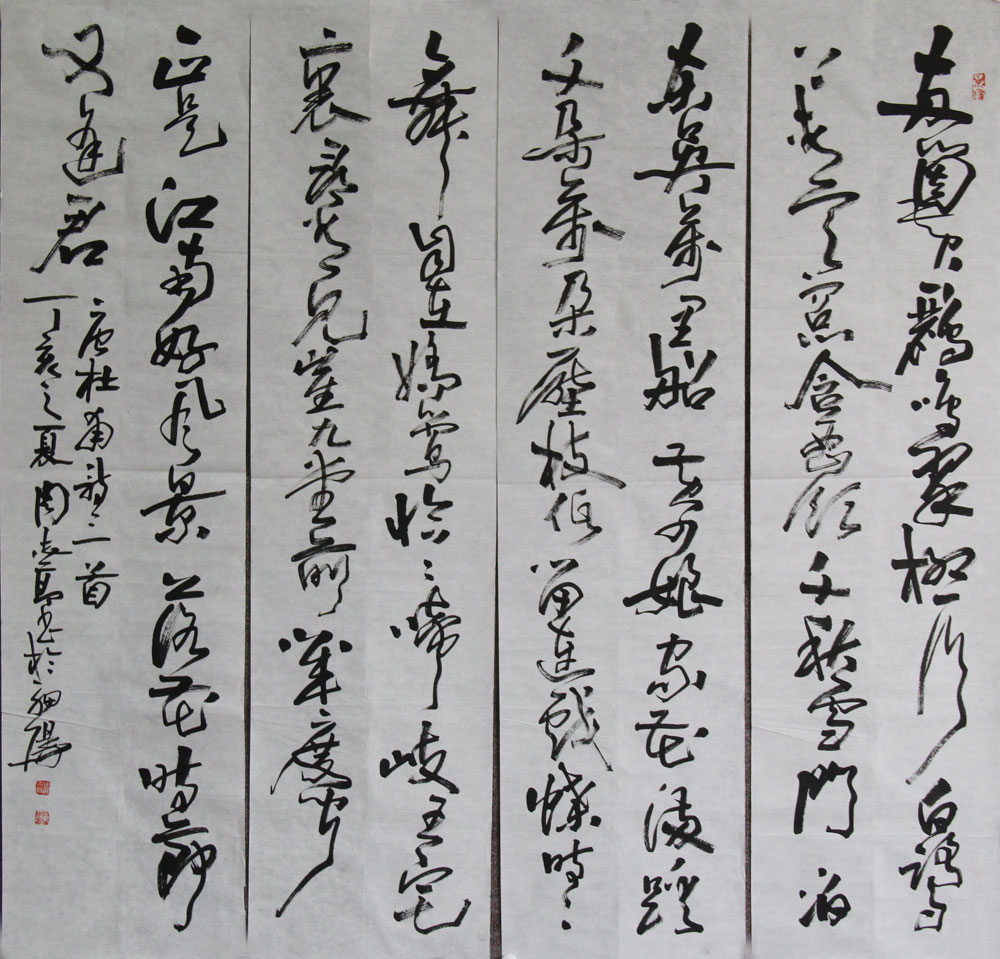 兩箇黃鸝鳴翠柳一行白鷺
上青天窓含西嶺千秋雪門泊
東吳萬里船黃四娘家花滿蹊
千朵萬朵壓枝低留連戲蝶時〻
舞自在嬌鶯恰〻啼岐王宅
裏尋常見崔九堂前幾度聞
正是江南好風景落花時節
又逢君
唐杜甫詩二首
丁亥之夏 書於